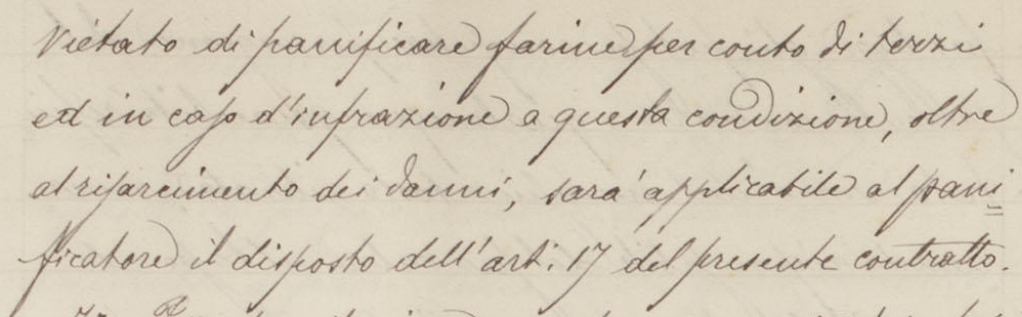 vietato di panificare farine per conto di terzi
ed in caso d'infrazione a questa condizione, oltre
al risarcimento dei danni, sarà applicabile al pani=
ficatore il disposto dell'art. 17 del presente contratto.